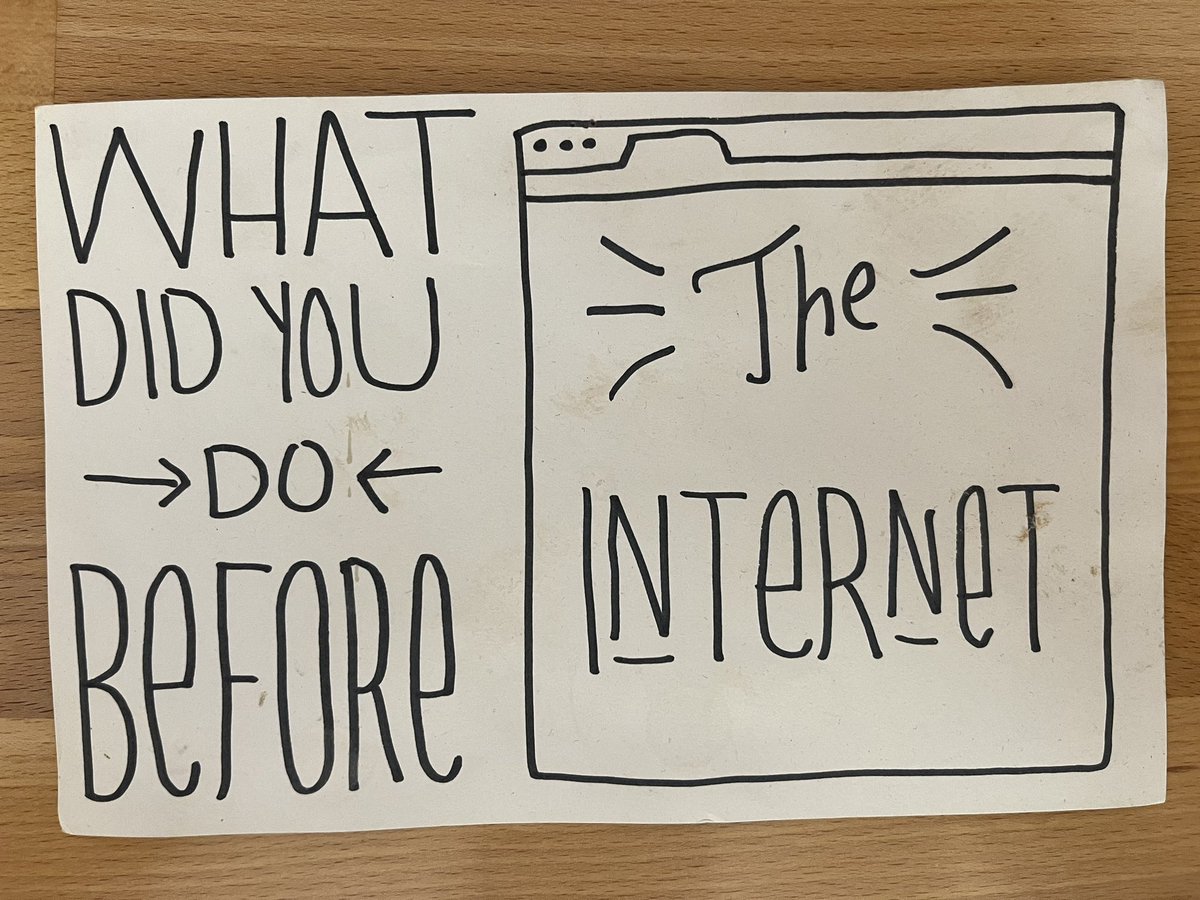 WHAT
DID YOU
→ DO ←
BeFORe
The
INTeRNeT